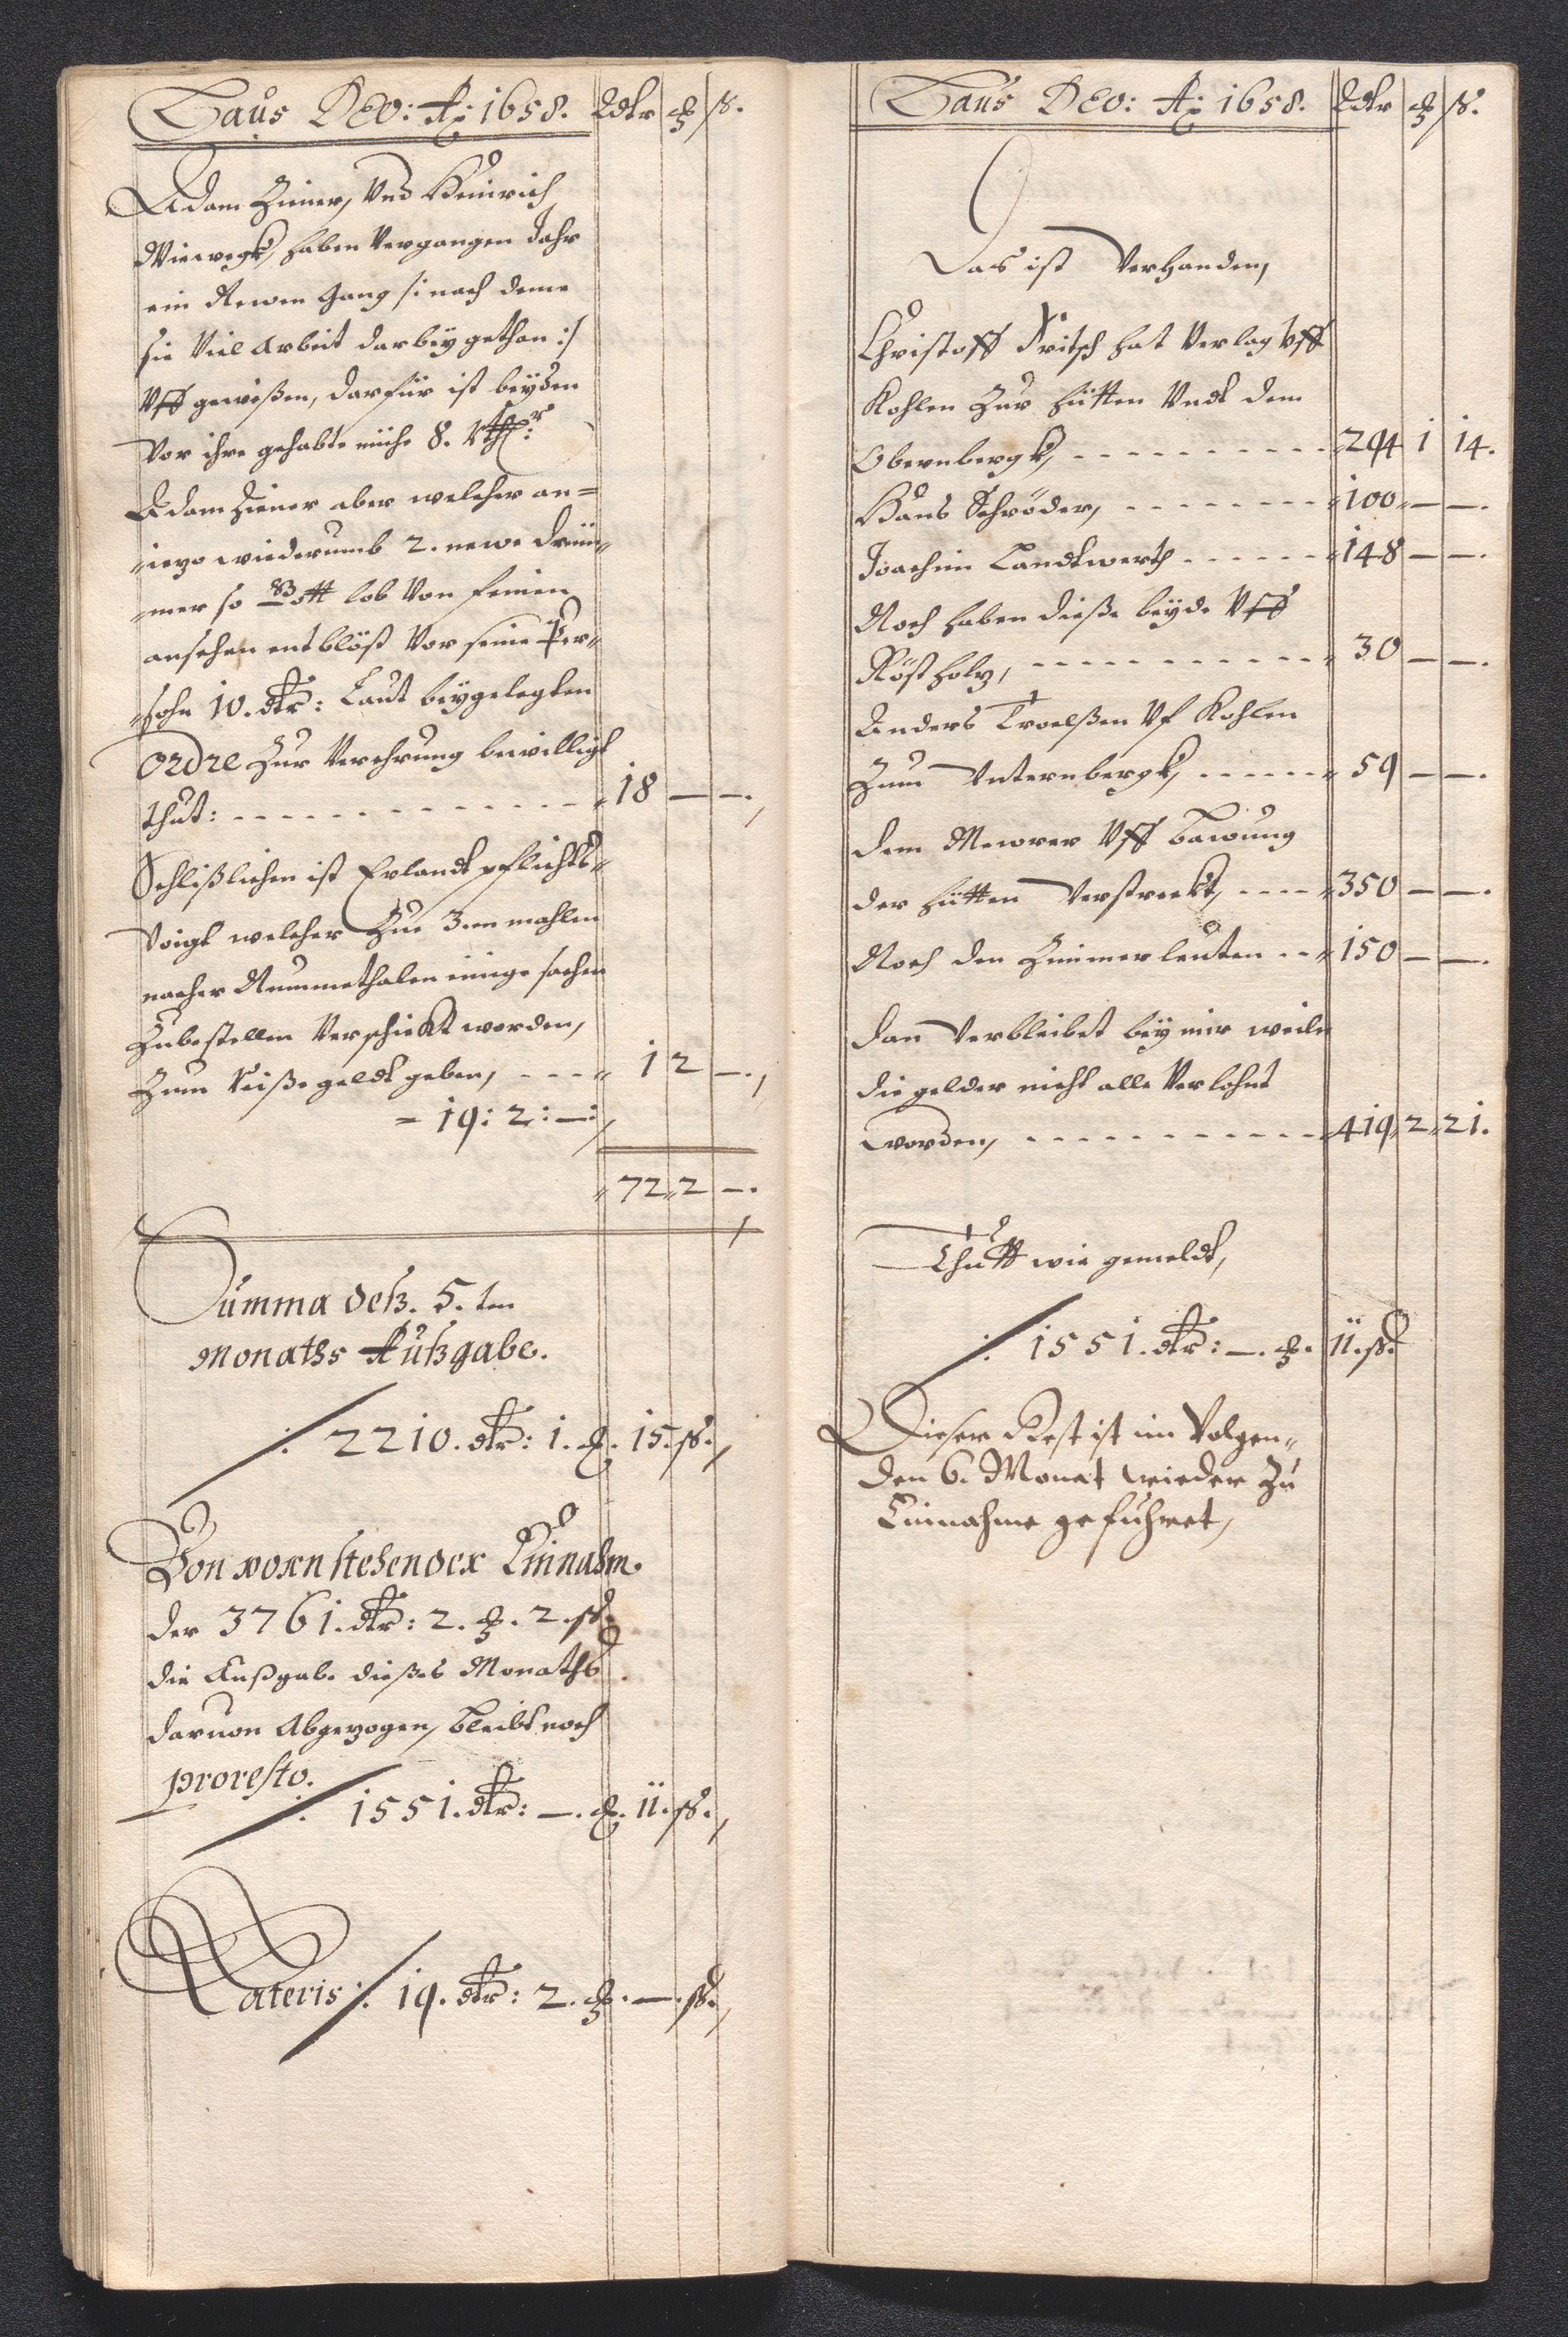 Laus Deo: Ao: 1658. Rdtr ₰ ß.
Adam Ziener, Und Heinrich
Viewegk, haben Vergangen Jahr
ein Newen Gang /: nach deme
sie Viel Arbeit darbey gethan :/
Uff gewißen, darfür ist beyden
Vor ihre gehabte mühe 8. Rthlr:
Adam Ziener aber welcher an=
iezo wiederumb 2. newe Trüm,,
mer so Gott lob Von feinen
ansehen entblöst Vor seine Per,,
sohn 10. dtr: Laut beygelegten
Ordre Zur Verehrung bewilligt
thut: - - - - - - - - - - 18 — —.
Schlißlichen ist Erlandt pflichts,,
Voigt welcher Zue 3.en mahlen
nacher Nummethalen einige sachen
Zubestellen Verschickt worden,
Zum Reiße geldt geben, - - - 1 2 —.
= 19: 2: —:
72 2 —.
Summa deß. 5.ten
Monaths Außgabe.
/: 2210. dtr: 1. ₰. 15. ß.
Von vornstehender Einnahm.
der 3761. dtr: 2. ₰. 2. ß.
die Außgabe dießes Monaths
daruon Abgezogen, bleibt noch
pro resto.
/: 1551. dtr: —. ₰. 11. ß.
Lateris /: 19. dtr: 2. ₰. —. ß.
Laus Deo: Ao: 1658. Rdtr ₰ ß.
Das ist Verhanden,
Christoff Fritsch hat Verlag Uff
Kohlen Zur Hütten Undt dem
Obernbergk, - - - - - - - - 294 1 14.
Hans Schröder, - - - - - - - 100 — —.
Joachim Landtwerth - - - - - 148 — —.
Noch haben dieße beyde Uff
Röstholz, - - - - - - - - - 30 — —.
Anders Troelßen Uf Kohlen
Zum Unternbergk, - - - - - 59 — —.
dem Mewrer Uff bawung
der Hütten Verstreckt, - - - - 350 — —.
Noch den Zimmerleuten - - 150 — —.
Dan Verbleibet bey mir weiln
die gelder nicht alle Verlohnt
worden, - - - - - - - - - - 419 2 21.
Thutt wie gemeldt,
/: 1551. dtr: —. ₰. 11. ß.
Dieser Rest ist im Volgen,,
den 6. Monat wieder Zu
Einnahme gefuhret,